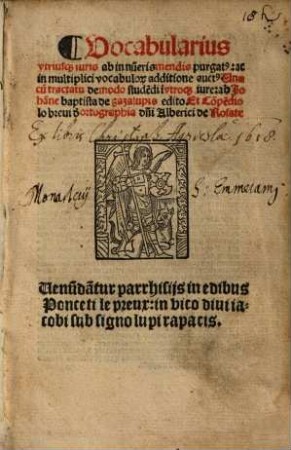 ¶ Vocabularius
vtriusq; iuris ab in nũeris mendis purgatꝰ: ac
in multiplici vocabuloꝝ additione auctꝰ Una
cũ tractatu de modo studẽdi ĩ vtroqꝫ iure: ab Jo
hãne baptista de gazalupis edito Et Cõpẽdio
lo breui ð ortographia dñi Alberici de Rosate
Ex libris Christophori 1618.
Monasterij S. Emmerami
Uenũdãtur parrhisijs in edibus
Ponceti le preux: in vico diui ia-
cobi sub signo lupi rapacis.